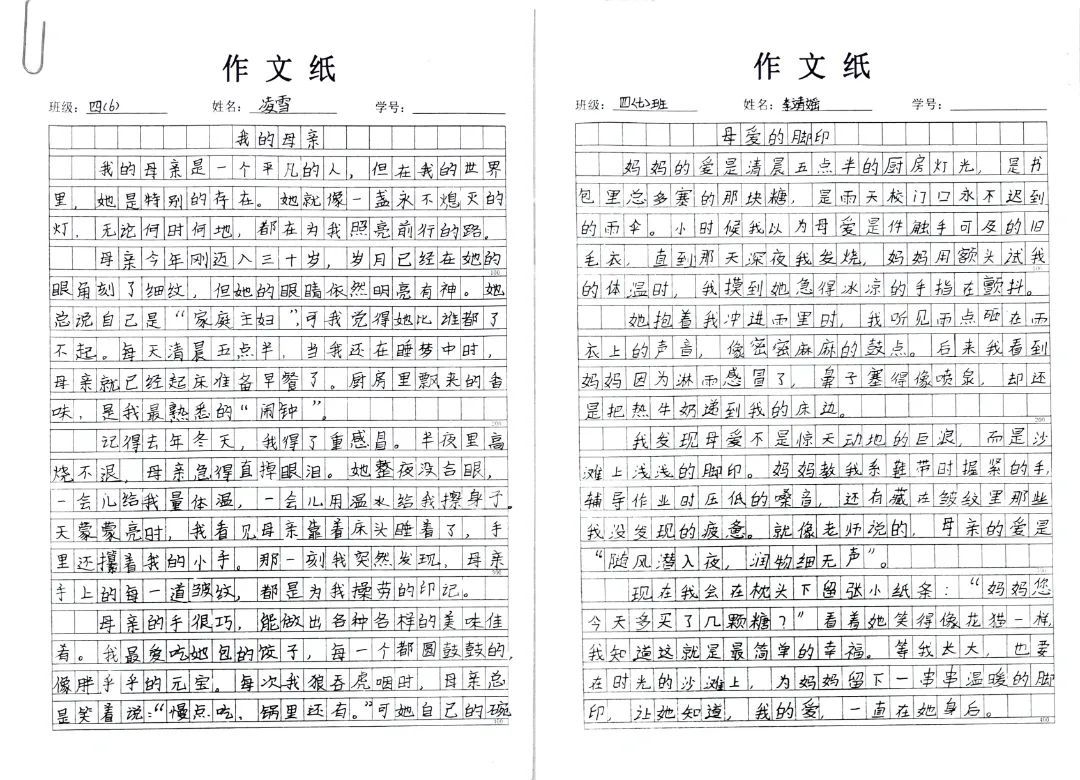 作文纸
班级：四(6) 姓名：凌雪 学号：
我的母亲
我的母亲是一个平凡的人，但在我的世界
里，她是特别的存在。她就像一盏永不熄灭的
灯，无论何时何地，都在为我照亮前行的路。
母亲今年刚迈入三十岁，岁月已经在她的
100
眼角刻了细纹，但她的眼睛依然明亮有神。她
总说自己是“家庭主妇”，可我觉得她比谁都了
不起。每天清晨五点半，当我还在睡梦中时，
母亲就已经起床准备早餐了。厨房里飘来的香
味，是我最熟悉的“闹钟”。
200
记得去年冬天，我得了重感冒。半夜里高
烧不退，母亲急得直掉眼泪。她整夜没合眼，
一会儿给我量体温，一会儿用温水给我擦身子。
天蒙蒙亮时，我看见母亲靠着床头睡着了，手
里还攥着我的小手。那一刻我突然发现，母亲
300
手上的每一道皱纹，都是为我操劳的印记。
母亲的手很巧，能做出各种各样的美味佳
肴。我最爱吃她包的饺子，每一个都圆鼓鼓的，
像胖乎乎的元宝。每次我狼吞虎咽时，母亲总
是笑着说：“慢点吃，锅里还有。”可她自己的碗
400
作文纸
班级：四(七)班 姓名：李清婉 学号：
母爱的脚印
妈妈的爱是清晨五点半的厨房灯光，是书
包里总多塞的那块糖，是雨天校门口永不迟到
的雨伞。小时候我以为母爱是件触手可及的旧
毛衣，直到那天深夜我发烧，妈妈用额头试我
100
的体温时，我摸到她急得冰凉的手指在颤抖。
她抱着我冲进雨里时，我听见雨点砸在雨
衣上的声音，像密密麻麻的鼓点。后来我看到
妈妈因为淋雨感冒了，鼻子塞得像喷泉，却还
是把热牛奶递到我的床边。
200
我发现母爱不是惊天动地的巨浪，而是沙
滩上浅浅的脚印。妈妈教我系鞋带时握紧的手，
辅导作业时压低的嗓音，还有藏在皱纹里那些
我没发现的疲惫。就像老师说的，母亲的爱是
“随风潜入夜，润物细无声”。
300
现在我会在枕头下留张小纸条：“妈妈您
今天多买了几颗糖？”看着她笑得像花猫一样，
我知道这就是最简单的幸福。等我长大，也要
在时光的沙滩上，为妈妈留下一串串温暖的脚
印，让她知道，我的爱，一直在她身后。
400